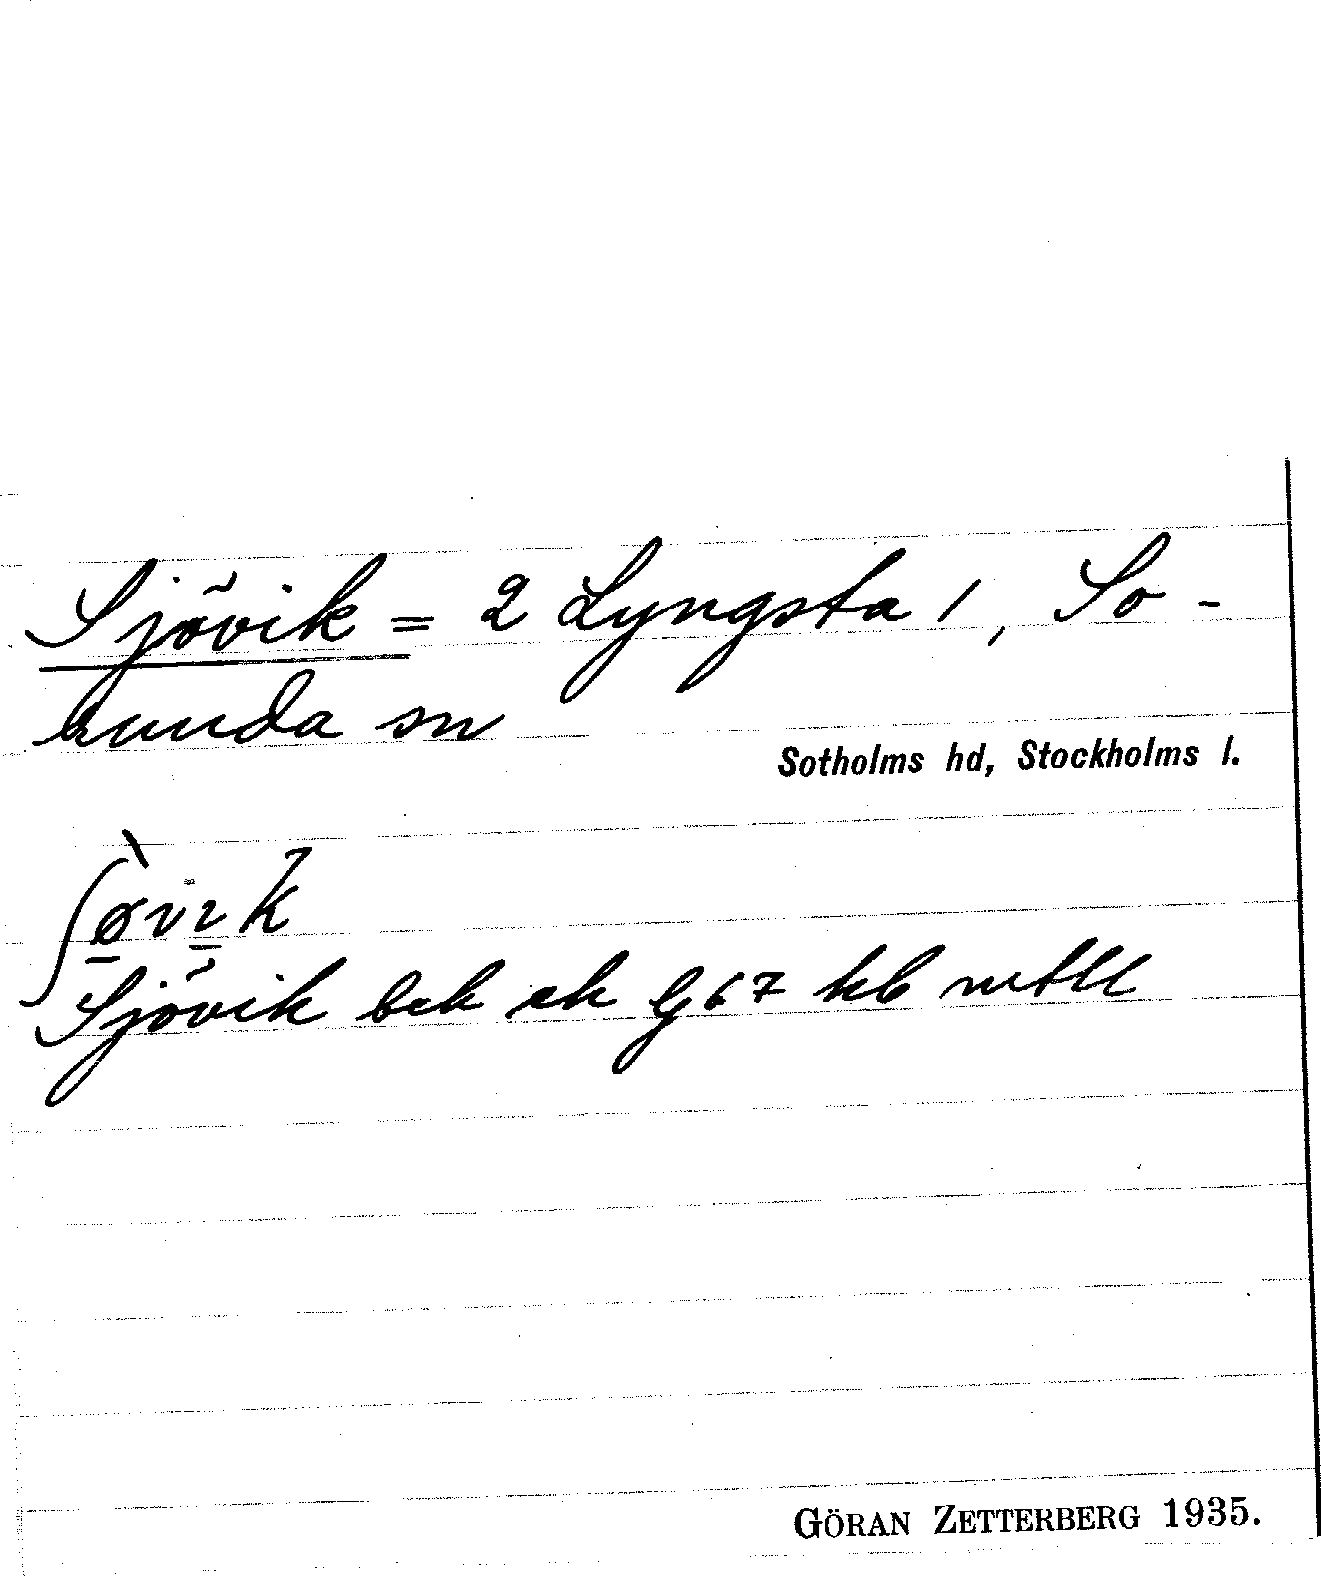 Sjövik = 2 Lyngsta 1, So-
runda sn
Sotholms hd, Stockholms l.
Sjövik bek ek
GÖRAN ZETTERBERG 1935.